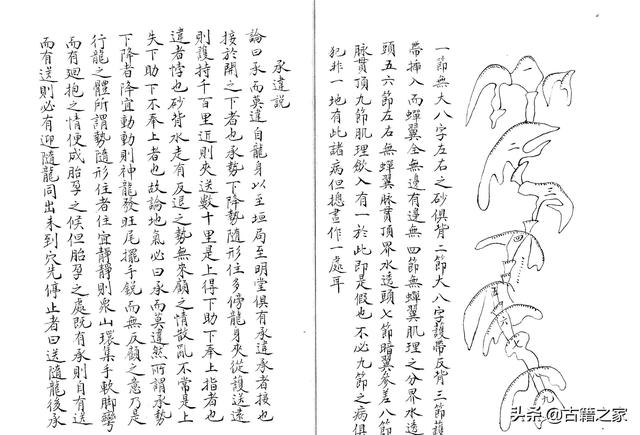 一節無大八字左右之砂俱背二節大八字護帶反背三節護
帶揷入而蟬翼全無邊有邊無四節無蟬翼肌理之分界水透
頭五六節左右無蟬翼脉貫頂界水透頭七節暗翼參差八節
脉貫頂九節肌理飲入有一於此即是假也不必九節之病俱
犯非一地有此諸病但摠畫作一處耳
承違説
論曰承而莫違自龍身以至垣局至明堂俱有承違承者接也
接於開之下者也承勢下降勢隨形住多傍龍身夾從護送遠
則護持千百里近則夾送數十里是上得下助下奉上指者也
違者悖也砂背水走有反退之勢無來顧之情散亂不常是上
失下助下不奉上者也故論地氣必曰承而莫違然所謂承勢
下降者降宜動動則神龍發旺尾擺手鋭而無反顧之意乃是
行龍之體所謂勢隨形住者住宜靜靜則衆山環集手軟脚彎
而有廻抱之情便成胎孕之候但胎孕之處既有承則自有送
而有送則必有迎隨龍同出未到穴先停止者曰送隨龍後承
一
二
九
头条 @古籍之家